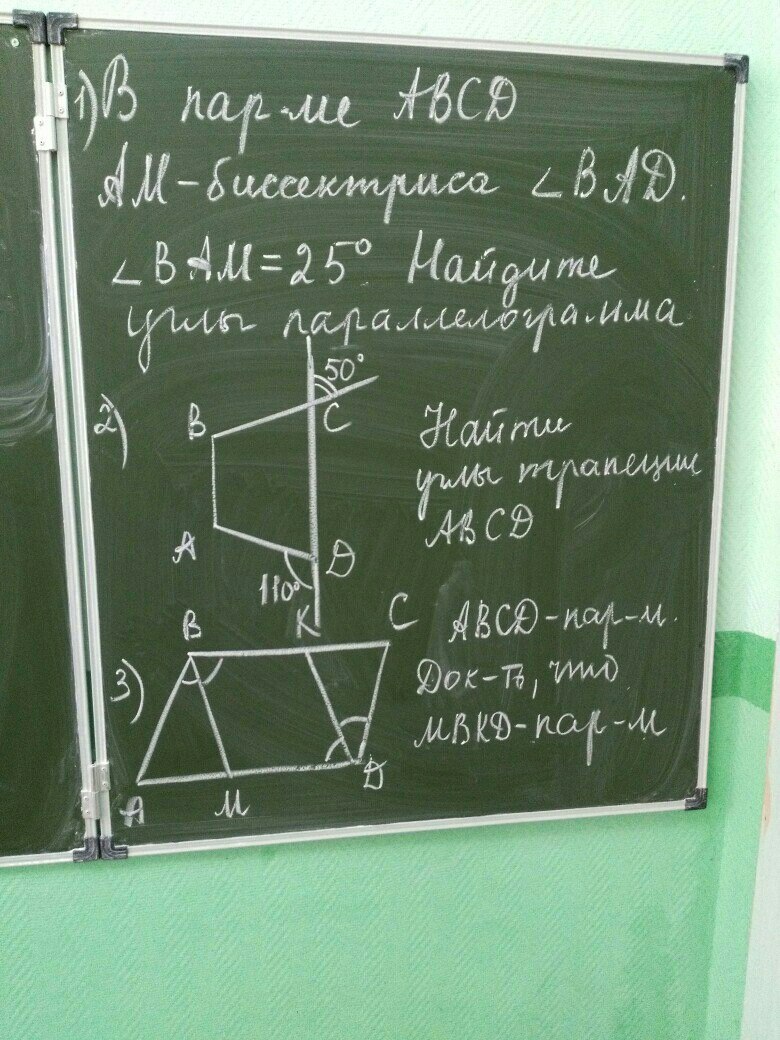 1) В пар-ме ABCD
AM-биссектриса ∠BAD.
∠BAM = 25° Найдите
углы параллелограмма
2)
50°
B
C
A
D
110°
K
Найти
углы трапеции
ABCD
3)
B
K
C
A
M
D
ABCD-пар-м.
Док-ть, что
MBKD-пар-м